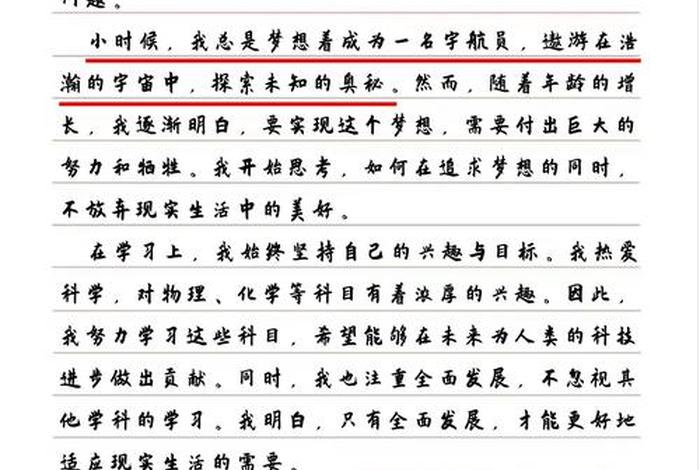 趣。
小时候，我总是梦想着成为一名宇航员，遨游在浩
瀚的宇宙中，探索未知的奥秘。然而，随着年龄的增
长，我逐渐明白，要实现这个梦想，需要付出巨大的
努力和牺牲。我开始思考，如何在追求梦想的同时，
不放弃现实生活中的美好。
在学习上，我始终坚持自己的兴趣与目标。我热爱
科学，对物理、化学等科目有着浓厚的兴趣。因此，
我努力学习这些科目，希望能够在未来为人类的科技
进步做出贡献。同时，我也注重全面发展，不忽视其
他学科的学习。我明白，只有全面发展，才能更好地
适应现实生活的需要。